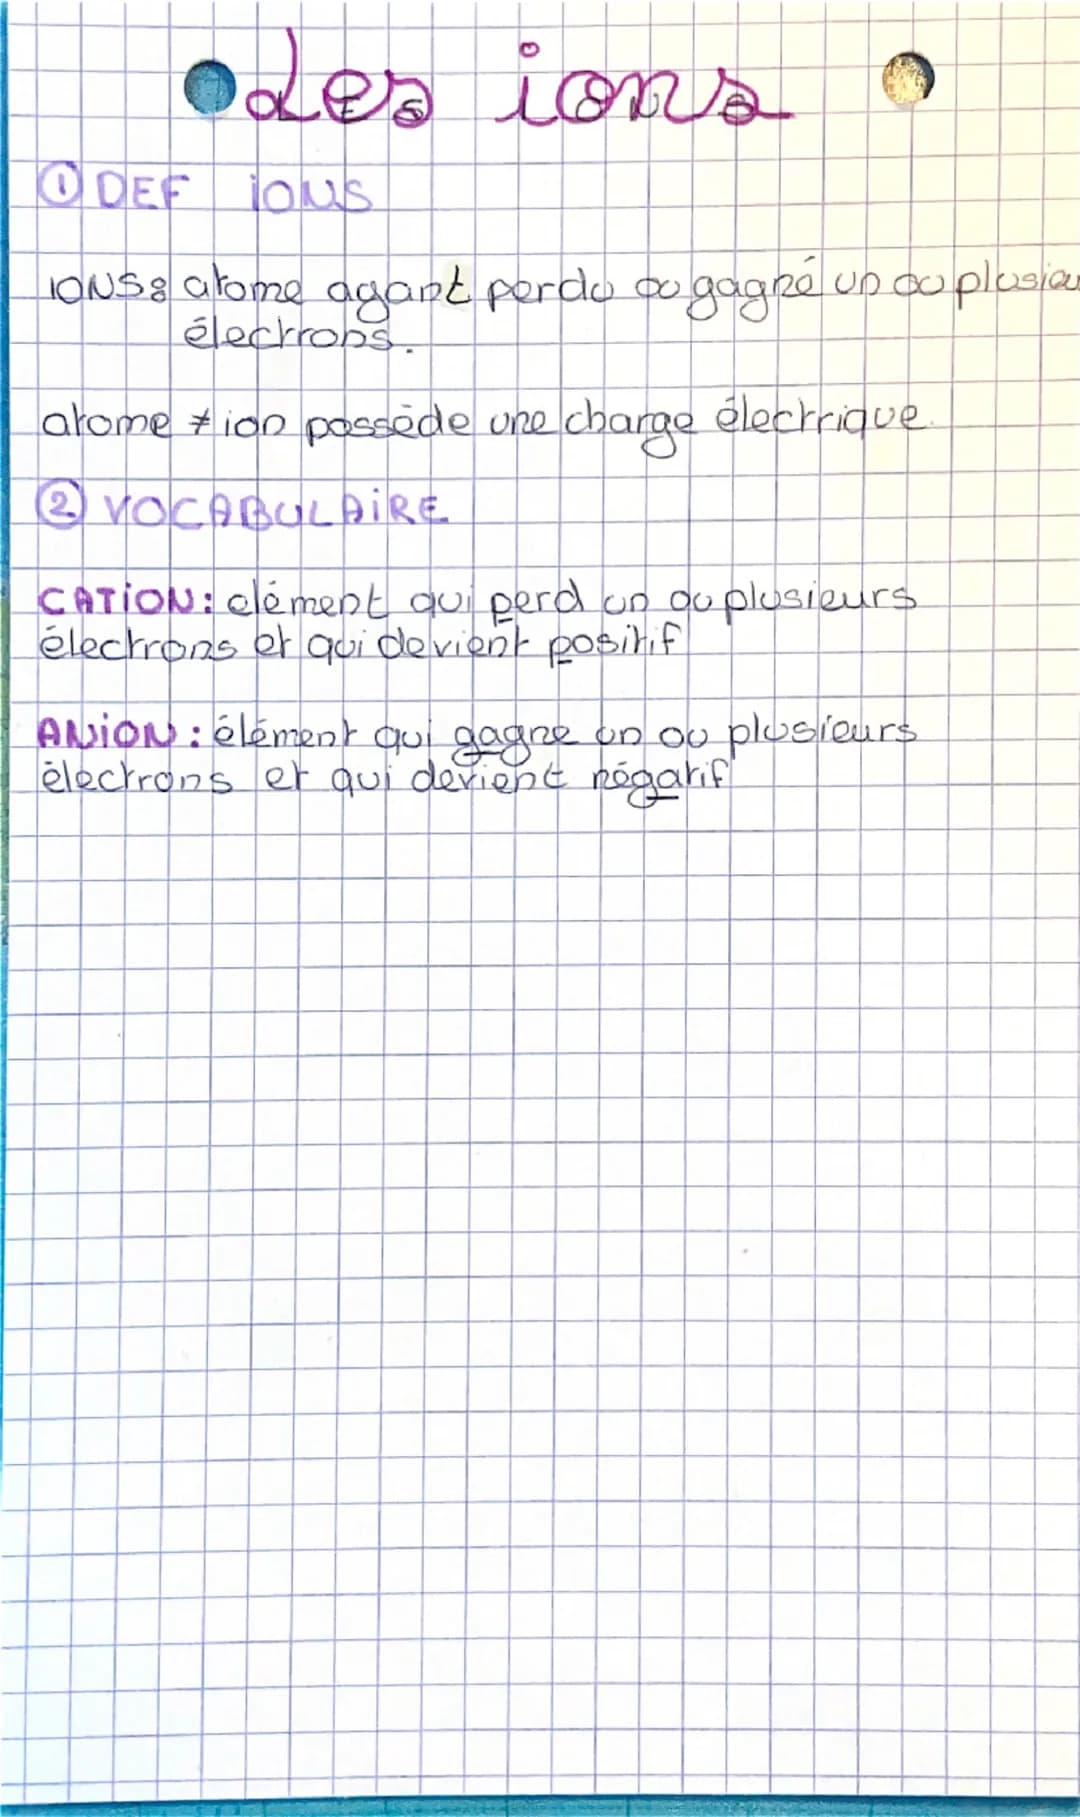 Les ions
① DEF iONS
IONS: atome ayant perdu ou gagné un ou plusieu
électrons.
atome ≠ ion possède une charge électrique.
② VOCABULAiRE
CATiON: élément qui perd un ou plusieurs
électrons et qui devient positif
ANiON: élément qui gagne un ou plusieurs
électrons et qui devient négatif